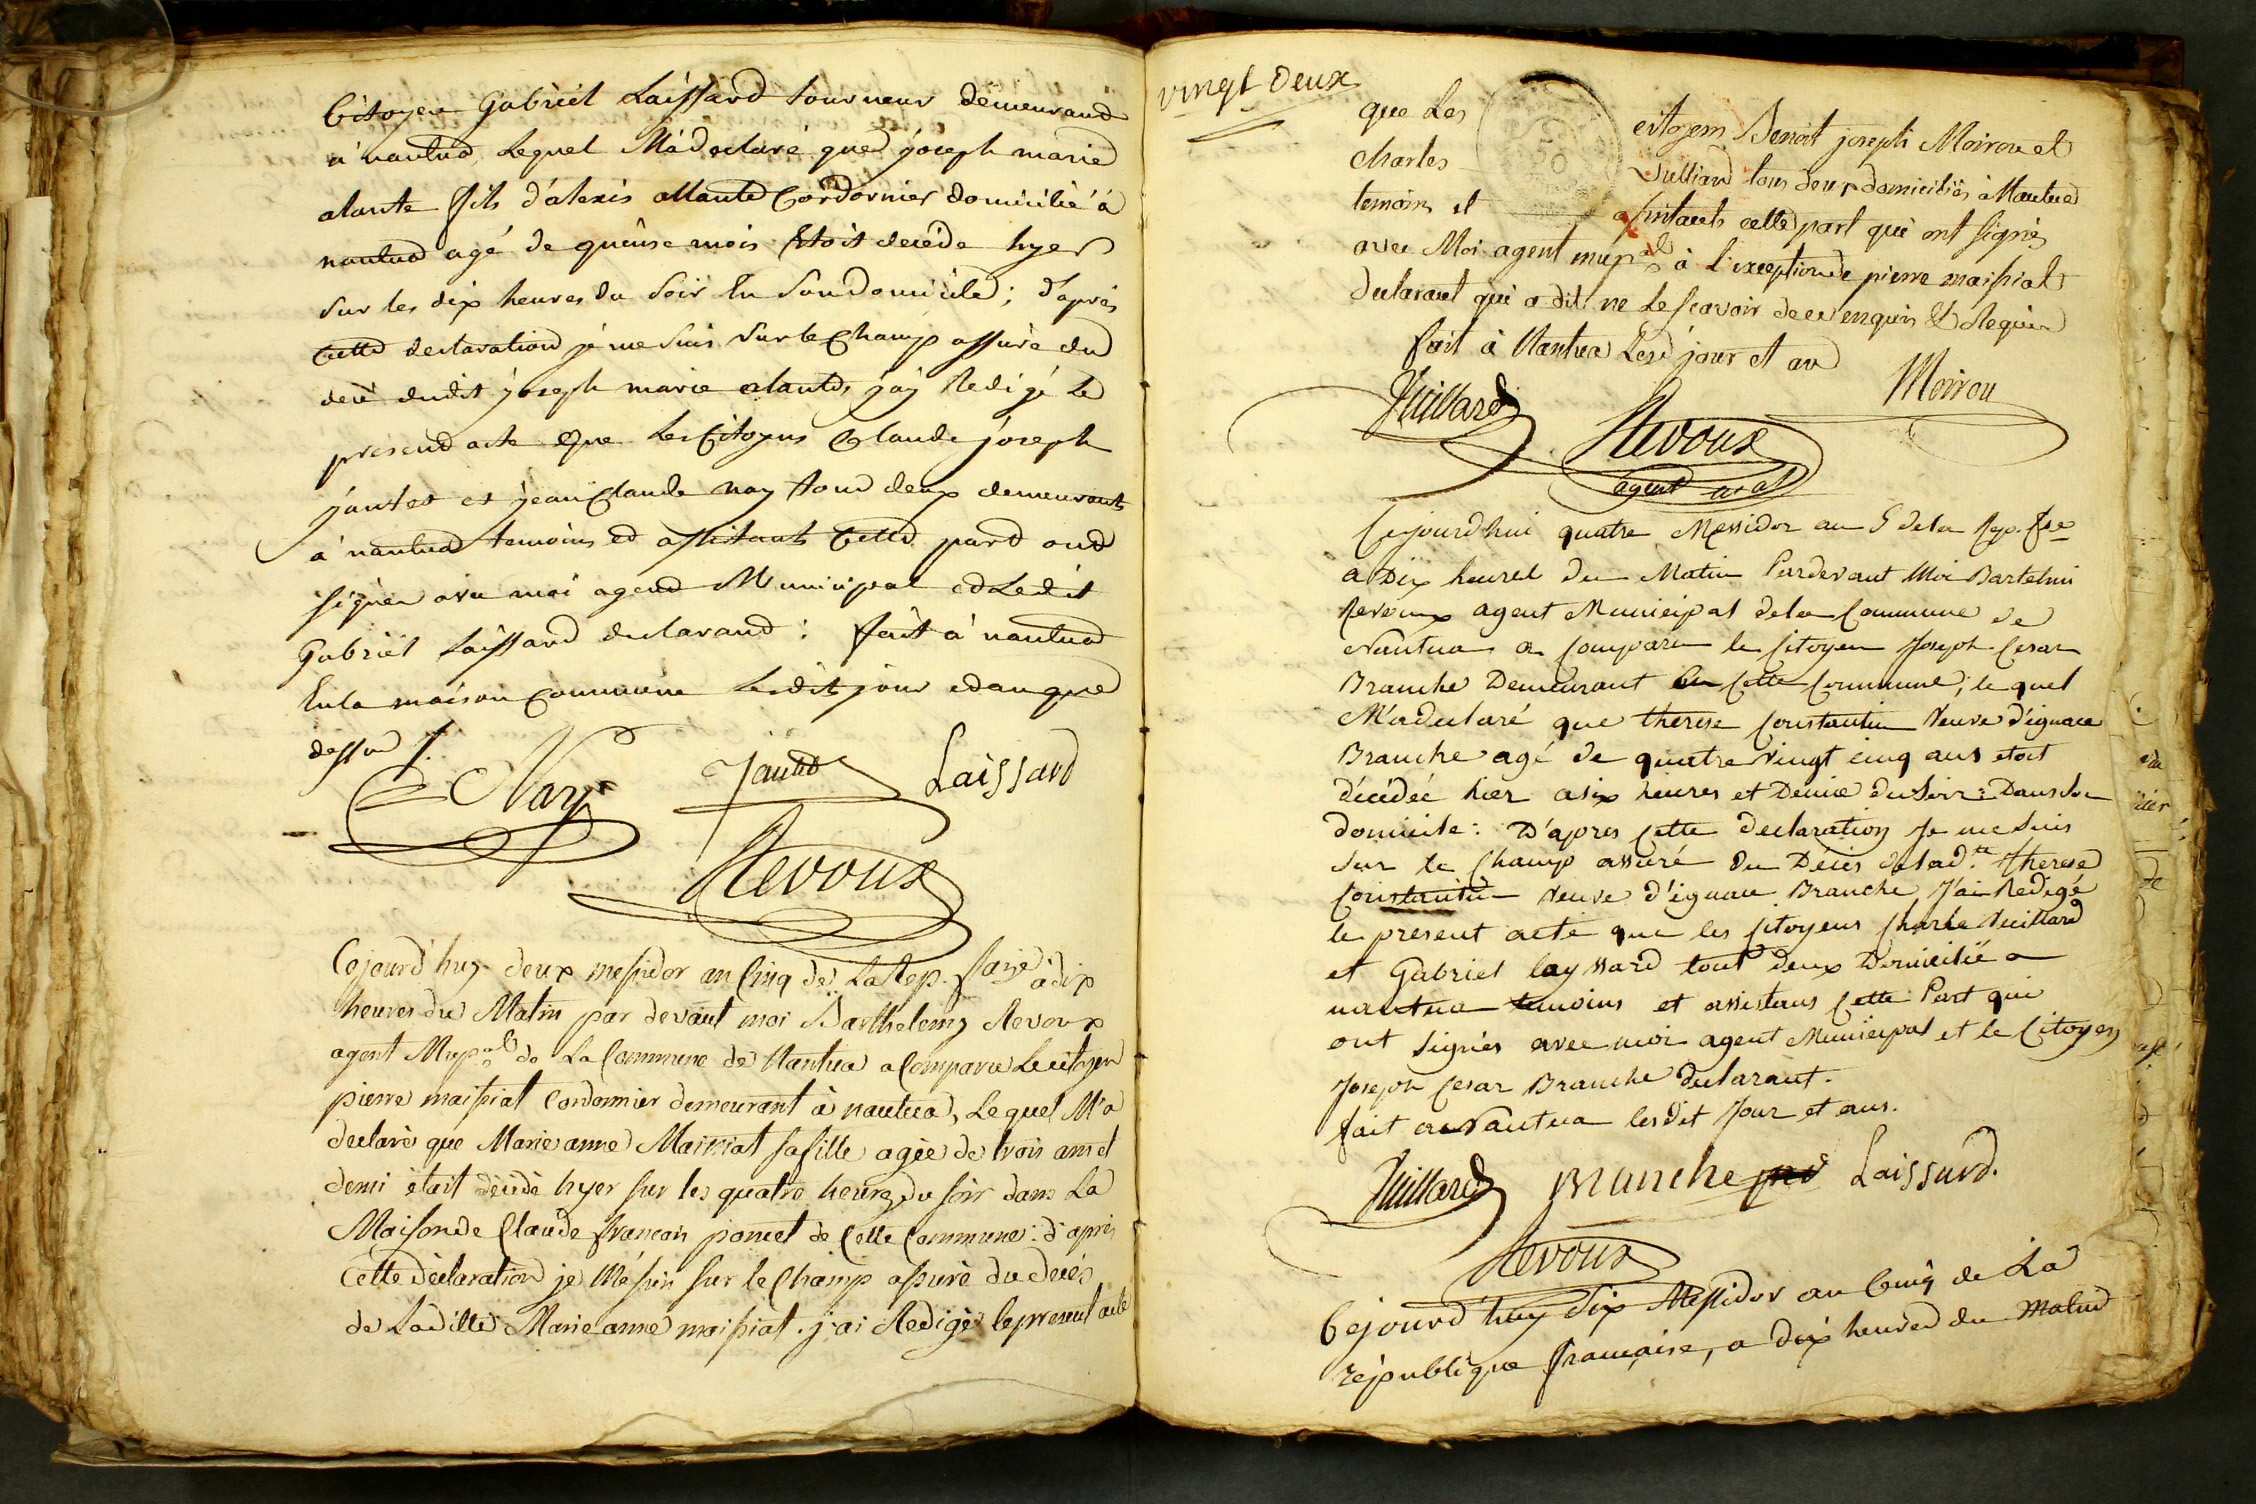 Citoyen Gabriel Laissard tourneur demeurand
a nantua, lequel M'a declaré que joseph marie
alante fils d'alexis allante Cordonier domicilié á
nantua agé de quinse mois Etoit decéde hyer
sur les dix heures du soir En son Domicile; d'aprés
Cette declaration je me suis sur le Champ assuré du
decé dudit joseph marie alante, j'ay Redigé Le
presend acte Que Les Citoyens Claude joseph
jantet et jean Claude nay toud deux demeurants
á nantua temoins ed assistants Cette pard ond
signer avec moi agend Municipal ed Ledit
Gabriel Laissard declarand: fait á nantua
En la maison Commune Lesdit jour ed an que
dessu f.
Nay jantet Laissard
Revoux
Cejourd'huy deux messidor an Cinq de La Rep. franç.e à dix
heures du Matin par devant moi Barthelemy Revoux
agent Mup.al de La Commune de Nantua a Comparu Le citoyen
pierre maissiat Cordonnier demeurant à nantua, Lequel M'a
declaré que Marie anne Maissiat sa fille agée de trois ans et
demi était decédé hyer sur les quatre heures du soir dans La
Maison de Claude françois poncet de Cette Commune: d'après
Cette déclaration je Mé suis sur le Champ assuré du decés
de Laditte Marie anne maissiat. j'ai Redigé le present acte
vingt Deux
que Les citoyens Benoit joseph Moirou et
Charles Juilliard tous deux domiciliés à Nantua
temoins et assistants cette part qui ont signés
avec Moi agent mup.al à l'exception de pierre maissiat
declarant qui a dit ne Le scavoir de ce enquis & Requis
fait à Nantua Lesd. jour et an
Juillard Moirou
Revoux
agent
Cejourd'hui quatre Messidor an 5 de la Rep. fse
a Dix heures du Matin Pardevant Moi Bartelmi
Revoux agent Municipal de la Commune de
Nantua a comparu le Citoyen Joseph Cesar
Branche Demeurant En Cette Commune; le quel
M'a declaré que therese Constantin Veuve d'ignace
Branche agé de quatre Vingt cinq ans etoit
décédée hier a six heures et Demie du soir: Dans son
domicile: D'apres Cette declaration Je me suis
Sur le Champ assuré du Déces de lad.te therese
Constantin Veuve d'ignace Branche J'ai Redigé
le present acte que les Citoyens Charle Vuillard
et Gabriel layssard tout deux Domicilié a
nantua temoins et assistans Cette Part qui
ont Signés avec moi agent Municipal et le Citoyen
Joseph Cesar Branche declarant.
fait a Nantua lesdit Jour et ans.
Juillard Branche Laissard.
Revoux
Cejourd'huy Six Messidor an Cinq de La
république française, a dix heures du Matin